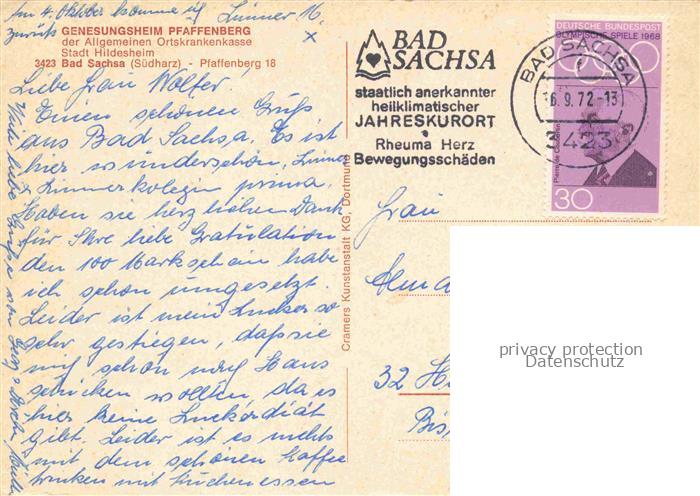 Am 4. Oktober komme ich
zurück
Zimmer 16
x
GENESUNGSHEIM PFAFFENBERG
der Allgemeinen Ortskrankenkasse
Stadt Hildesheim
3423 Bad Sachsa (Südharz) - Pfaffenberg 18
Liebe Frau Wolter!
Einen schönen Gruß
aus Bad Sachsa. Es ist
hier wunderschön, Zimmer
u. Zimmerkolegin prima.
Haben sie herzlichen Dank
für Ihre liebe Gratulation
den 100 Markschein habe
ich schon umgesetzt.
Leider ist mein Zucker so
sehr gestiegen, daß sie
mich schon nach Haus
schicken wollten, da es
hier keine Zuckerdiät
gibt. Leider ist es nichts
mit dem schönen Kaffee
trinken mit Kuchen essen
Viele liebe Grüße von
Cramers Kunstanstalt KG, Dortmund
BAD
SACHSA
staatlich anerkannter
heilklimatischer
JAHRESKURORT
Rheuma Herz
Bewegungsschäden
BAD SACHSA
16.9.72-13
3423
DEUTSCHE BUNDESPOST
OLYMPISCHE SPIELE 1968
Pierre de Coubertin
30
Frau
32 Hi
Bis
privacy protection
Datenschutz